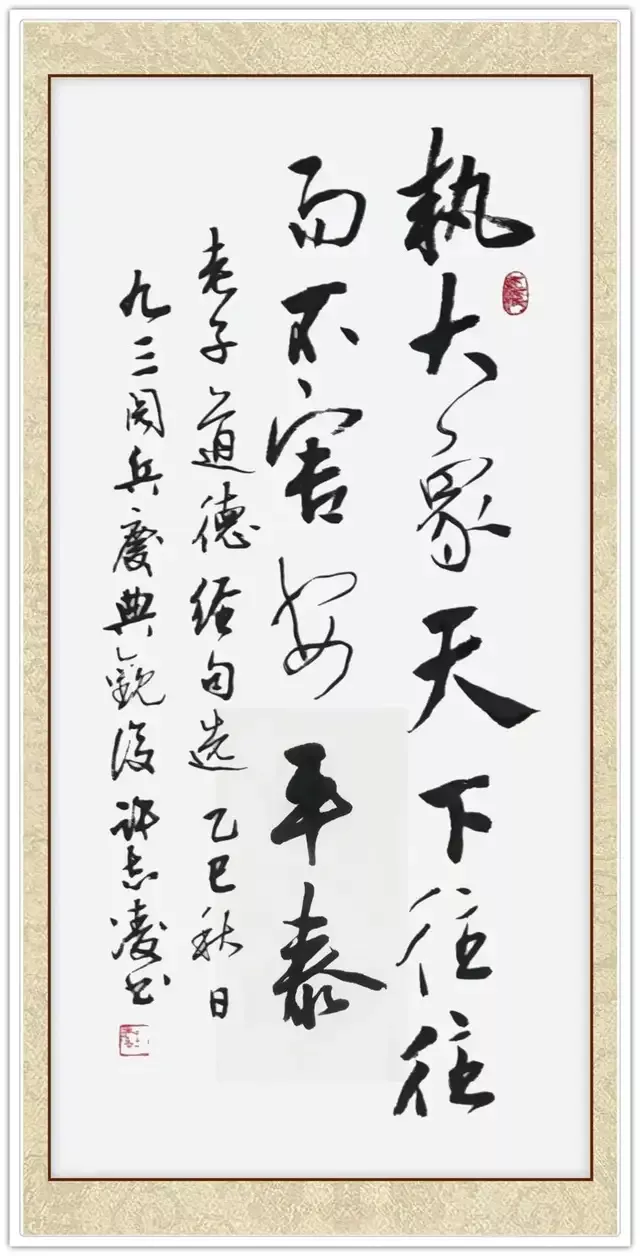 執大象天下往往
而不害安平泰
老子道德经句选 乙巳秋日
九三阅兵慶典觀後许志凌书